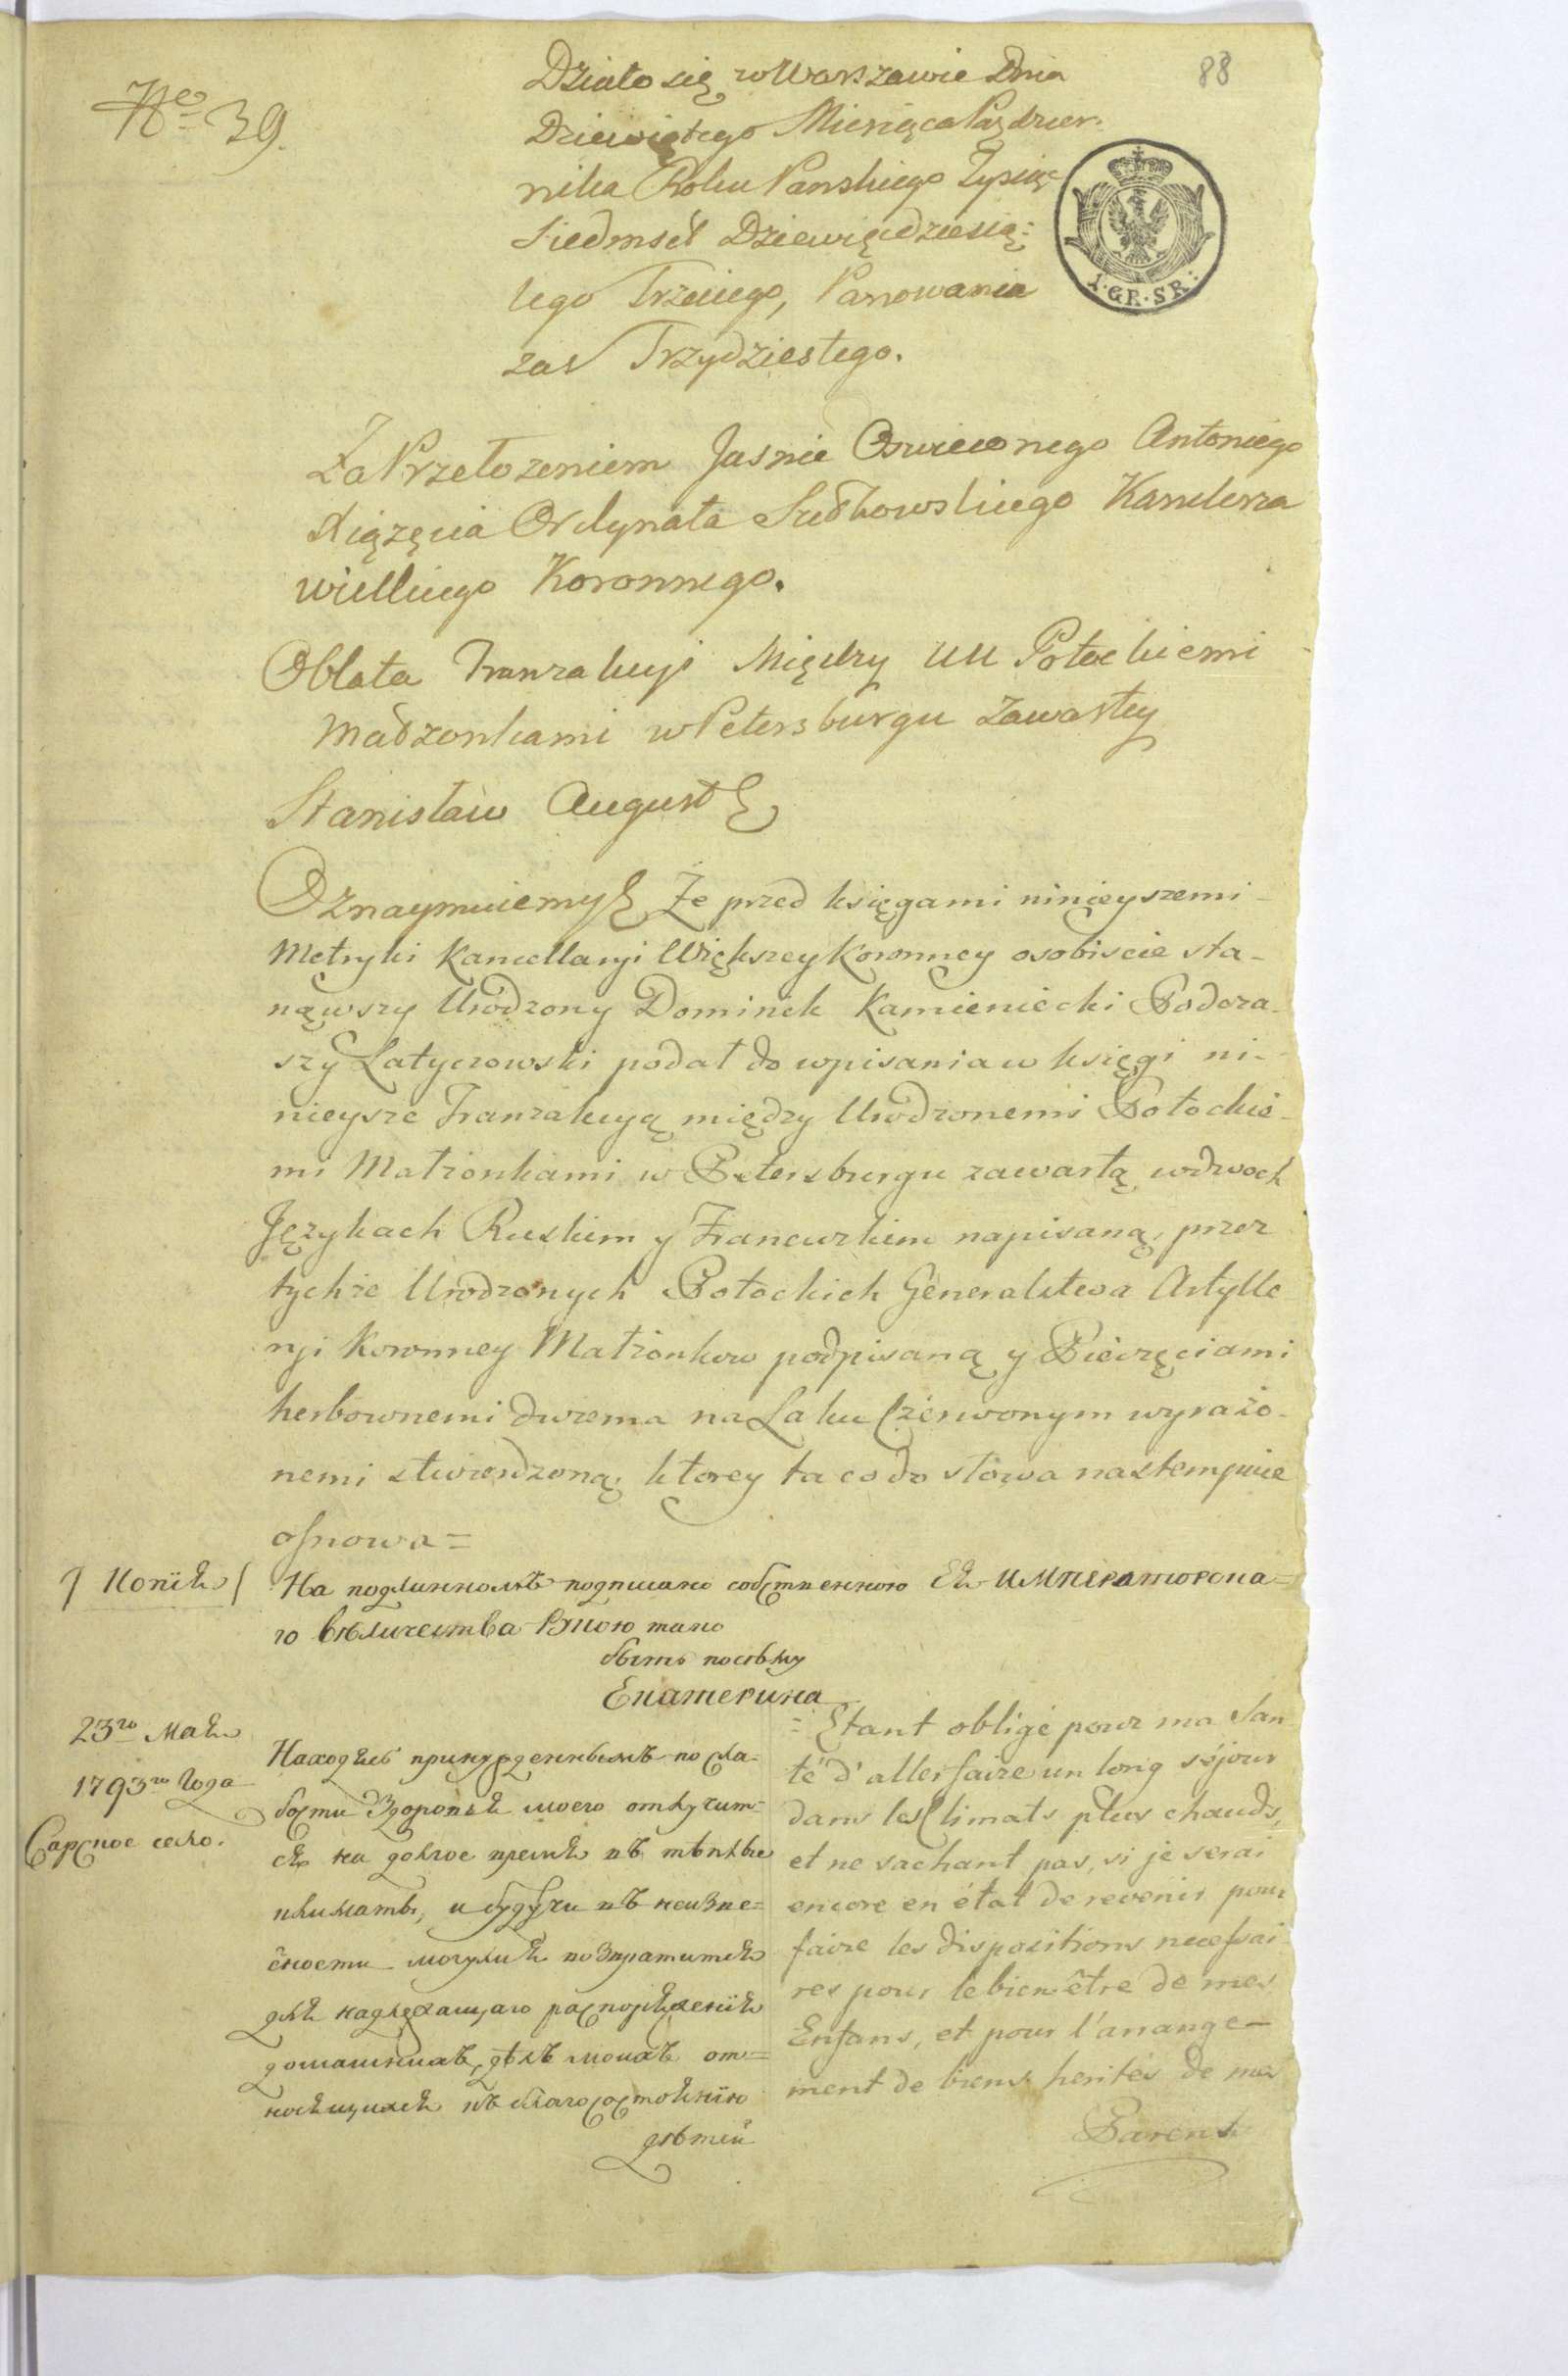 No 39.
88
Działo się w Warszawie Dnia
Dziewiątego Miesięca Paździer-
nika Roku Panskiego Tysiąc
Siedmset Dziewięćdziesią-
tego Trzeciego, Panowania
zas Trzydziestego.
1·GR·SR·
Za Przełozeniem Jasnie Oswieconego Antoniego
Xiążęcia Ordynata Sułkowskiego Kanclerza
Wielkiego Koronnego.
Oblata Tranzakcyi Między UU Potockiemi
Małzonkami w Petersburgu Zawartey
Stanisław August
Oznaymuiemy Że przed księgami ninieyszemi
Metryki Kancellaryi Większey Koronney osobiscie sta-
nąwszy Urodzony Dominik Kamieniecki Podcza-
szy Latyczowski podał do wpisania w księgi ni-
nieysze Tranzakcyą między Urodzonemi Potockie-
mi Małżonkami w Petersburgu zawartą w dwoch
Językach Ruskim y Francuzkim napisaną, przez
tychże Urodzonych Potockich Generalstwa Artylle-
ryi Koronney Małżonkow podpisaną y Pieczęciami
herbownemi dwiema na Laku Czerwonym wyrażo-
nemi stwierdzoną, ktorey ta co do słowa nastempuie
osnowa =
Копїя
На подлинномъ подписано собственною Ея Императорска=
го Величества Рукою тако
быть посему
Екатерина
23го Мая
1793го Года
Сарское село.
Находясь принужденнымъ по сла=
бости Здоровья моего отлучит=
ся на долгое время въ теплые
климаты, и будучи въ неизве=
стности могули я возвратится
для надлежащаго распоряженїя
домашнихъ дѣлъ моихъ от=
носящихся къ благосостоянїю
дѣтей
= Etant obligé pour ma San-
té d'aller faire un long séjour
dans les Climats plus chauds,
et ne sachant pas, si je serai
encore en état de revenir pour
faire les dispositions necessai-
res pour le bien être de mes
Enfans, et pour l'arrange-
ment de biens herités de mes
Parens